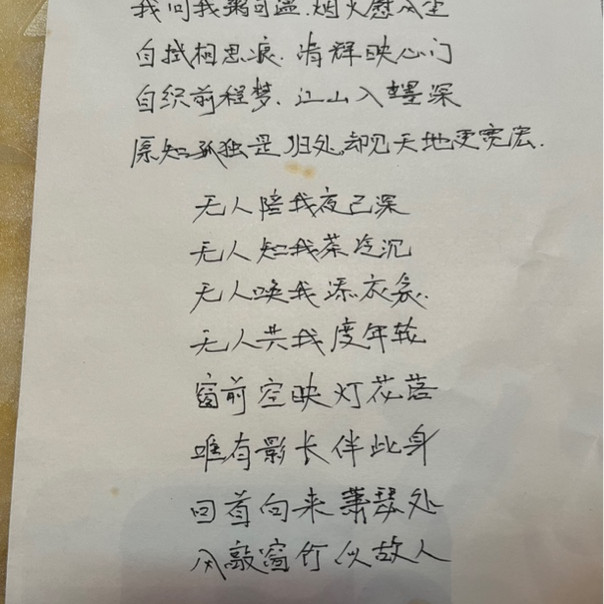 我问我粥可温.烟火慰风尘
自拭相思泪.清辉映心门
自织前程梦.江山入墨深
原知孤独是归处,却见天地更宽宏.
无人陪我夜已深
无人知我茶冷沉
无人唤我添衣衾.
无人共我度年轮
窗前空映灯花落
唯有影长伴此身
回首向来萧瑟处
风敲窗竹似故人